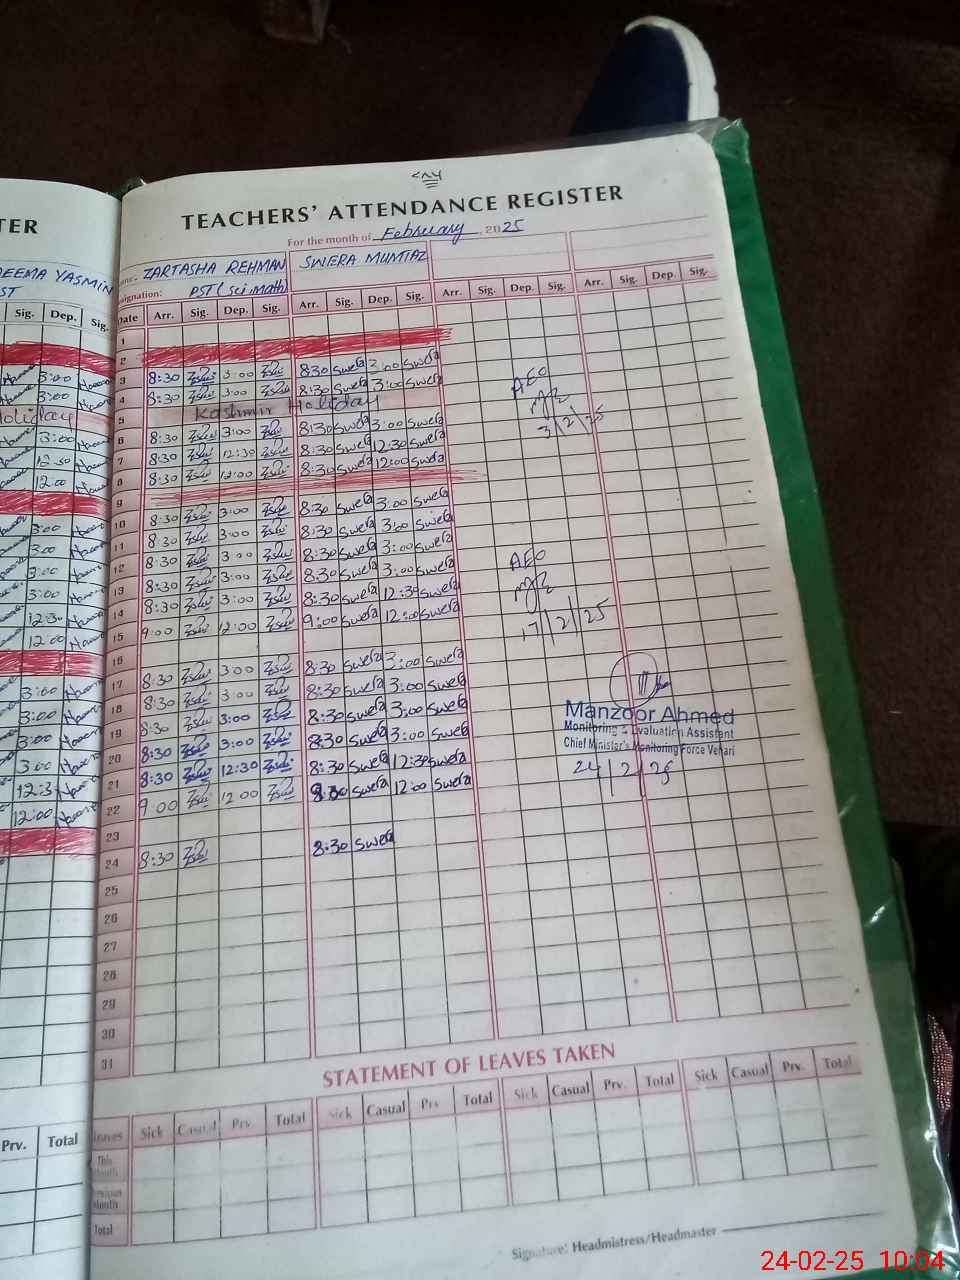 TER
DEEMA YASMIN
ST
Sig. Dep. Sig.
3:00
3:00
Holiday
3:00
12:30
12:00
3:00
3:00
3:00
3:00
12:30
12:00
3:00
3:00
3:00
3:00
12:3
12:00
Prv. Total
TEACHERS' ATTENDANCE REGISTER
For the month of February, 2025
ZARTASHA REHMAN SWERA MUMTAZ
esignation: PST (sci math)
Date Arr. Sig. Dep. Sig. Arr. Sig. Dep. Sig. Arr. Sig. Dep. Sig. Arr. Sig. Dep. Sig.
1
2
3 8:30 3:00 8:30 swera 3:00 swera
4 8:30 3:00 8:30 swera 3:00 swera
5 Kashmir Holiday
6 8:30 3:00 8:30 swera 3:00 swera
7 8:30 12:30 8:30 swera 12:30 swera
8 8:30 12:00 8:30 swera 12:00 swera
9
10 8:30 3:00 8:30 swera 3:00 swera
11 8:30 3:00 8:30 swera 3:00 swera
12 8:30 3:00 8:30 swera 3:00 swera
13 8:30 3:00 8:30 swera 3:00 swera
14 8:30 3:00 8:30 swera 12:30 swera
15 9:00 12:00 9:00 swera 12:00 swera
16
17 8:30 3:00 8:30 swera 3:00 swera
18 8:30 3:00 8:30 swera 3:00 swera
19 8:30 3:00 8:30 swera 3:00 swera
20 8:30 3:00 8:30 swera 3:00 swera
21 8:30 12:30 8:30 swera 12:30 swera
22 9:00 12:00 swera 12:00 swera
23
24 8:30 8:30 swera
25
26
27
28
29
30
31
AEO
3/2/25
AEO
17/2/25
Manzoor Ahmed
Monitoring & Evaluation Assistant
Chief Minister's Monitoring Force Vehari
24/2/25
STATEMENT OF LEAVES TAKEN
Leaves Sick Casual Prv. Total Sick Casual Prv. Total Sick Casual Prv. Total Sick Casual Prv. Total
This Month
Previous Month
Total
Signature: Headmistress/Headmaster
24-02-25 10:04